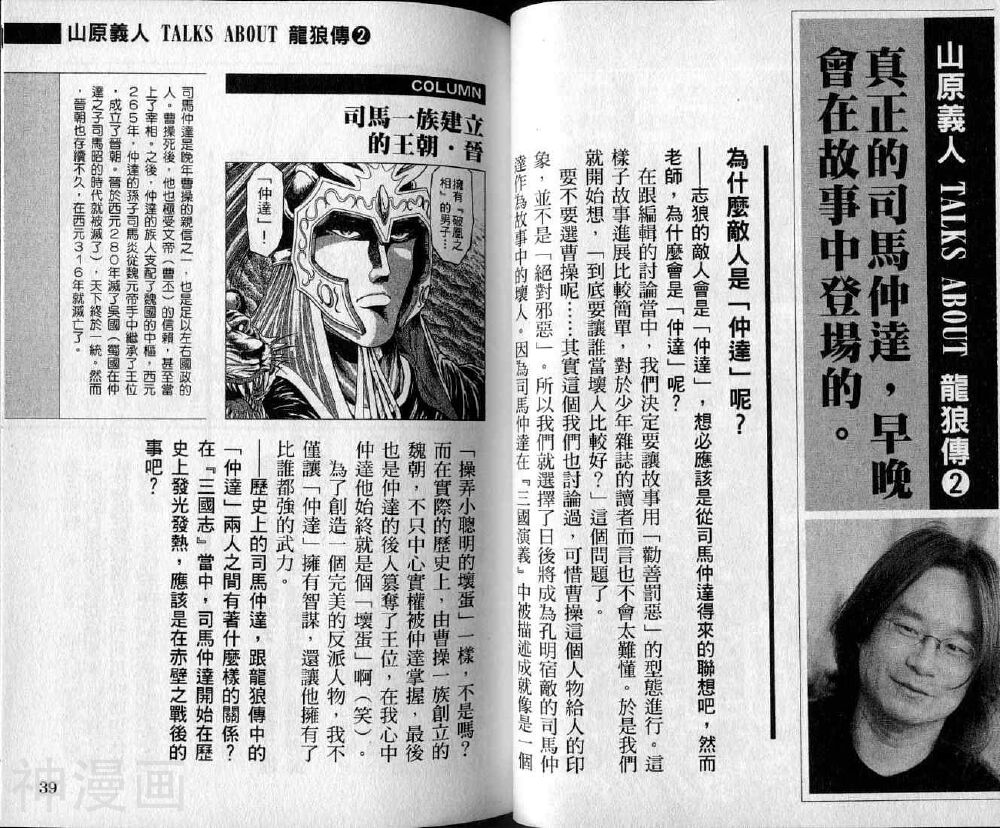 山原義人 TALKS ABOUT 龍狼傳❷
真正的司馬仲達，早晚
會在故事中登場的。
為什麼敵人是「仲達」呢？
——志狼的敵人會是「仲達」，想必應該是從司馬仲達得來的聯想吧，然而
老師，為什麼會是「仲達」呢？
在跟編輯的討論當中，我們決定要讓故事用「勸善罰惡」的型態進行。這
樣子故事進展比較簡單，對於少年雜誌的讀者而言也不會太難懂。於是我們
就開始想，「到底要讓誰當壞人比較好？」這個問題了。
要不要選曹操呢……其實這個我們也討論過，可惜曹操這個人物給人的印
象，並不是「絕對邪惡」。所以我們就選擇了日後將成為孔明宿敵的司馬仲
達作為故事中的壞人。因為司馬仲達在『三國演義』中被描述成就像是一個
山原義人 TALKS ABOUT 龍狼傳❷
COLUMN
司馬一族建立
的王朝・晉
擁有「破凰之
相」的男子…
「仲達」！
司馬仲達是晚年曹操的親信之一，也是足以左右國政的
人。曹操死後，他也極受文帝（曹丕）的信賴，甚至當
上了宰相。之後，仲達的族人支配了魏國的中樞，西元
265年，仲達的孫子司馬炎從魏元帝手中繼承了王位
，成立了晉朝。晉於西元280年滅了吳國（蜀國在仲
達之子司馬昭的時代就被滅了），天下終於一統。然而
，晉朝也存續不久，在西元316年就滅亡了。
「操弄小聰明的壞蛋」一樣，不是嗎？
而在實際的歷史上，由曹操一族創立的
魏朝，不只中心實權被仲達掌握，最後
也是仲達的後人篡奪了王位，在我心中
仲達他始終就是個「壞蛋」啊（笑）。
為了創造一個完美的反派人物，我不
僅讓「仲達」擁有智謀，還讓他擁有了
比誰都強的武力。
——歷史上的司馬仲達，跟龍狼傳中的
「仲達」兩人之間有著什麼樣的關係？
在『三國志』當中，司馬仲達開始在歷
史上發光發熱，應該是在赤壁之戰後的
事吧？
39
神漫画